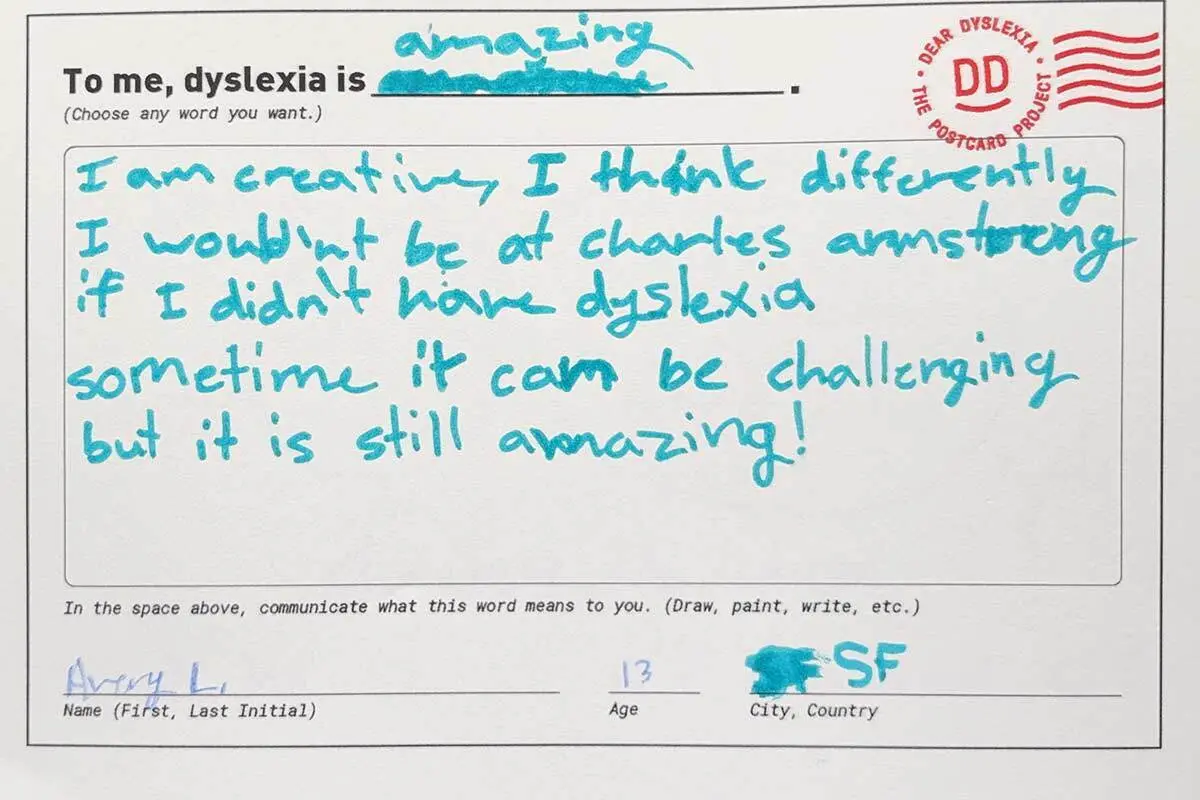 amazing
To me, dyslexia is .
(Choose any word you want.)
DEAR DYSLEXIA · THE POSTCARD PROJECT ·
DD
I am creative, I think differently
I would'nt be at charles armstrong
if I didn't have dyslexia
sometime it can be challenging
but it is still amazing!
In the space above, communicate what this word means to you. (Draw, paint, write, etc.)
Avery L. 13 SF
Name (First, Last Initial) Age City, Country